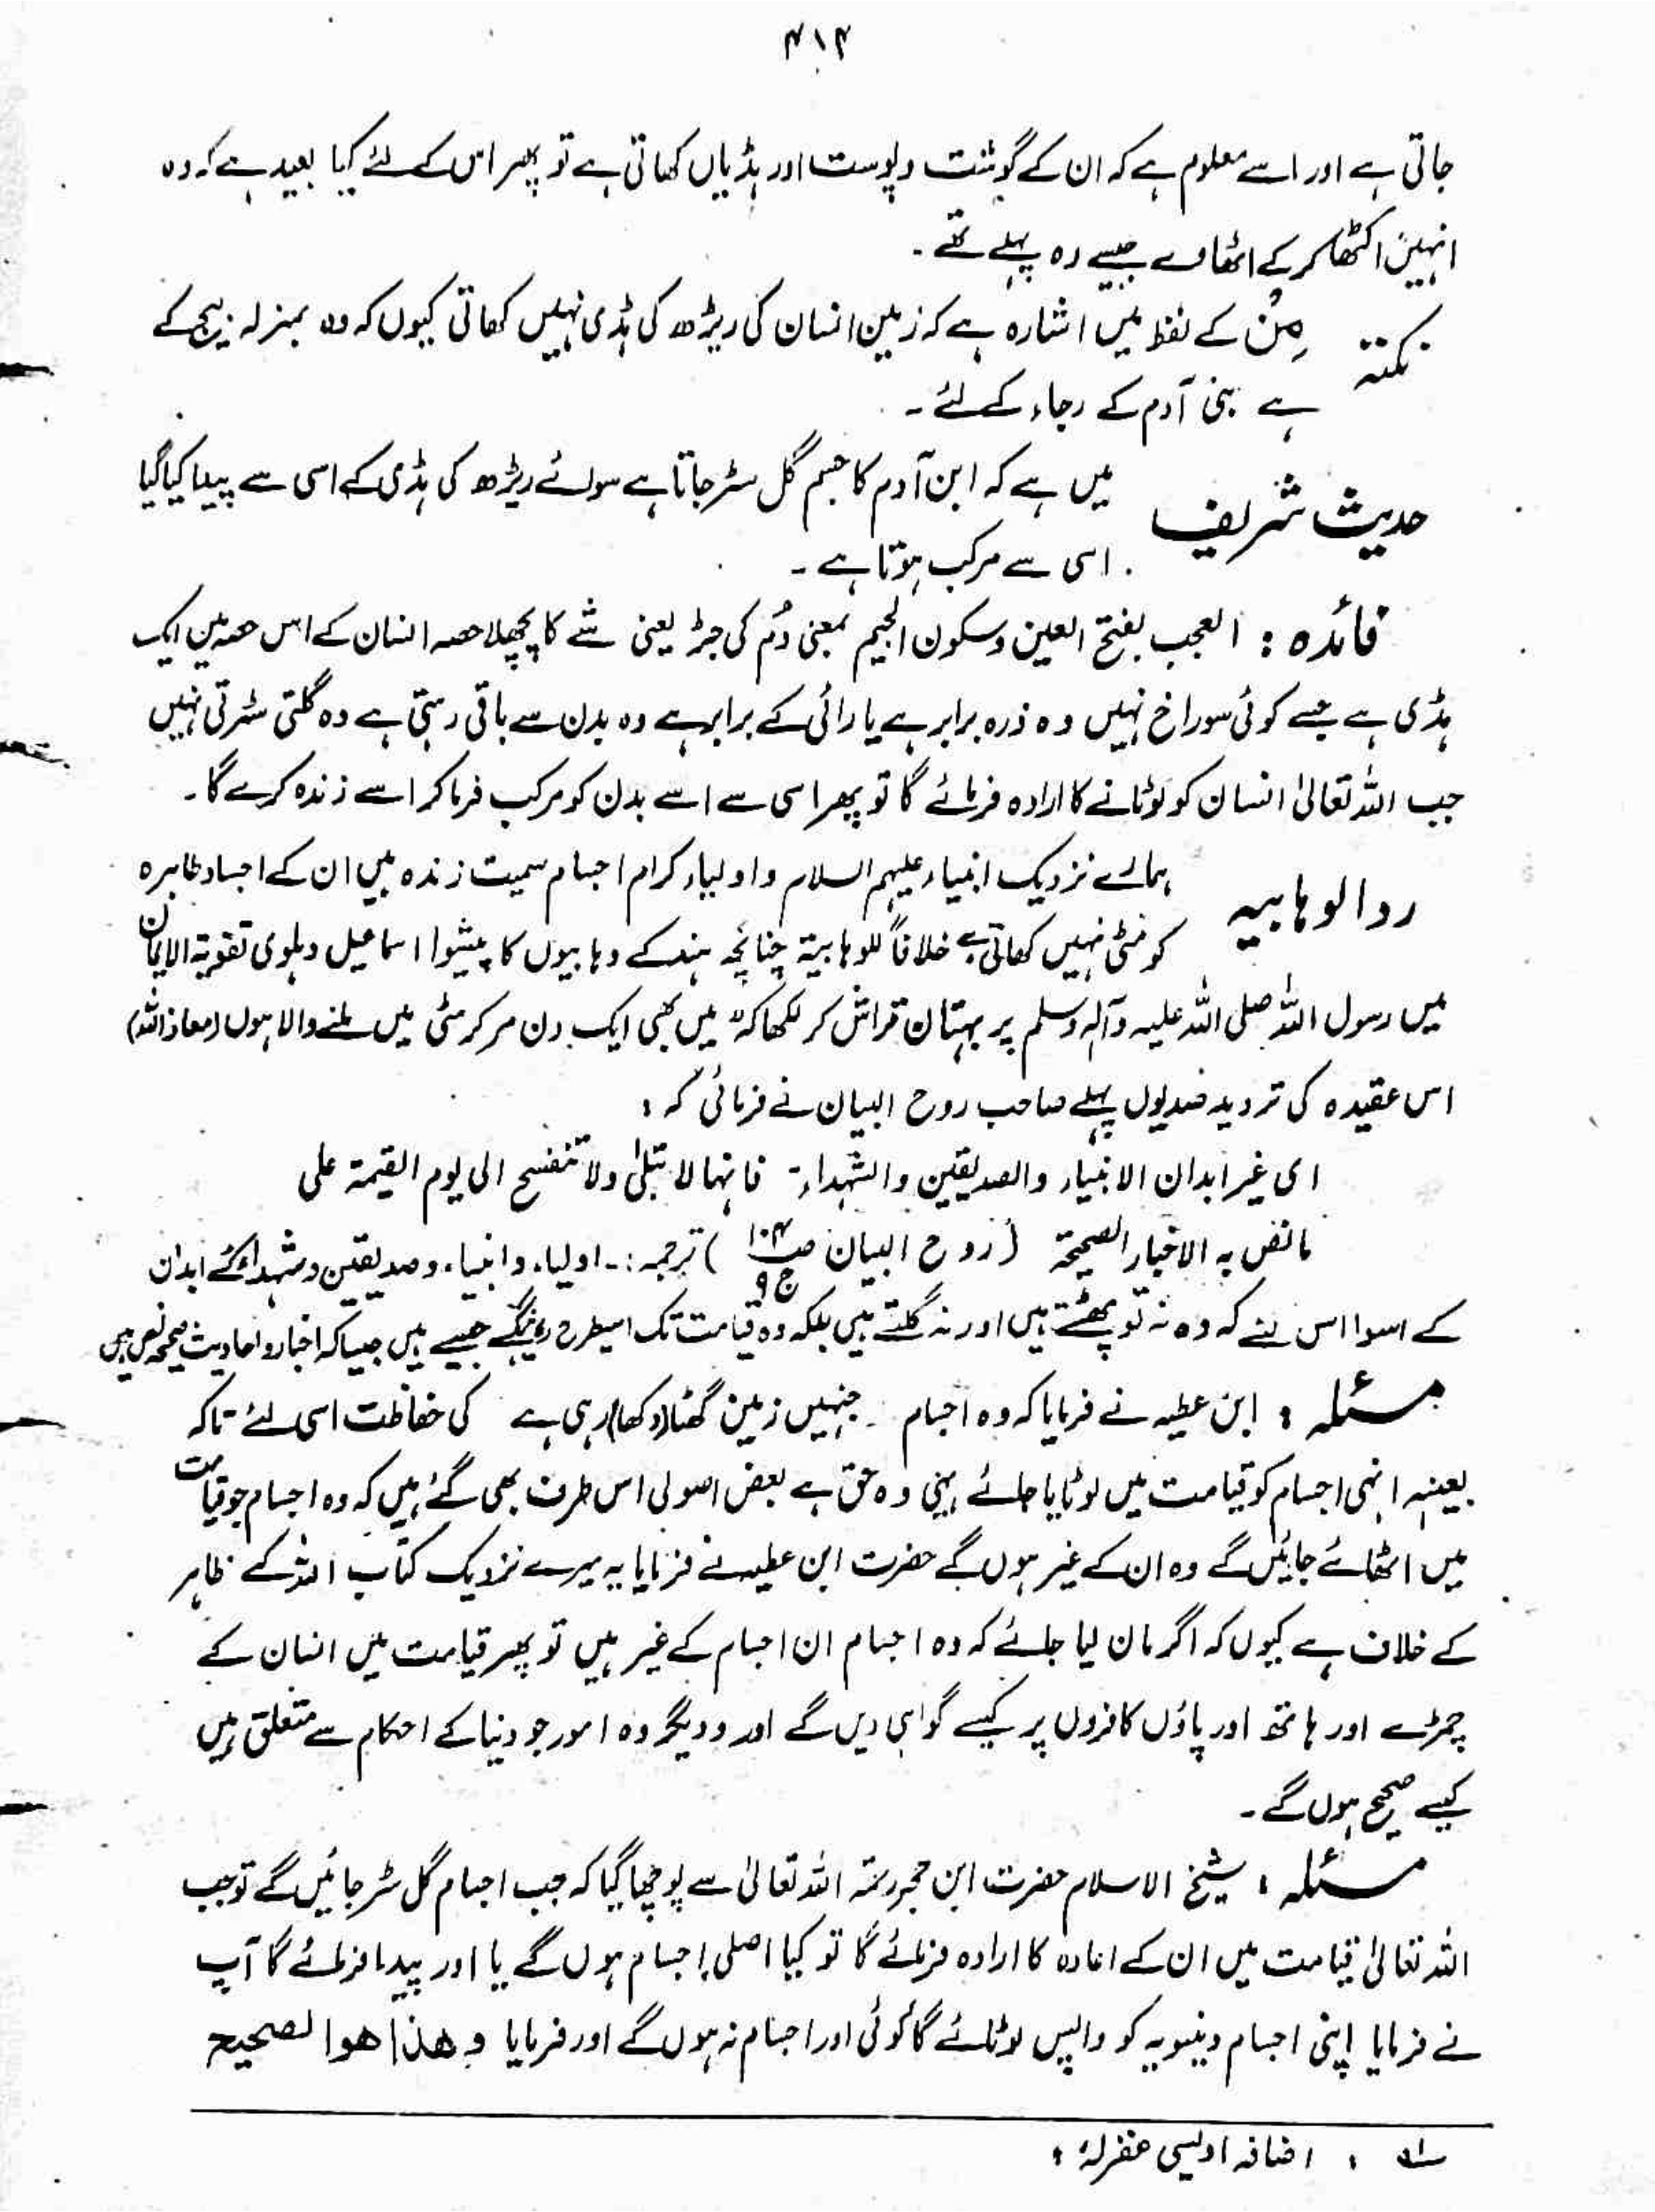 ۴۱۴
جاتی ہے اور اسے معلوم ہے کہ ان کے گوشت و پوست اور ہڈیاں کھاتی ہے تو پھر اس کے لئے کیا بعید ہے کہ وہ
انہیں اکٹھا کر کے اٹھاوے جیسے وہ پہلے تھے ۔
نکتہ مِنْ کے لفظ میں اشارہ ہے کہ زمین انسان کی ریڑھ کی ہڈی نہیں کھاتی کیوں کہ وہ بمنزلہ بیج کے
ہے بنی آدم کے رجاء کے لئے ۔
حدیث شریف میں ہے کہ ابن آدم کا جسم گل سڑ جاتا ہے سوائے ریڑھ کی ہڈی کے اسی سے پیدا کیا گیا
اسی سے مرکب ہوتا ہے ۔
فائدہ : العجب بفتح العین و سکون الجیم بمعنی دُم کی جڑ یعنی شے کا پچھلا حصہ انسان کے اس حصہ میں ایک
ہڈی ہے جسے کوئی سوراخ نہیں وہ ذرہ برابر ہے یا رائی کے برابر ہے وہ بدن سے باقی رہتی ہے وہ گلتی سڑتی نہیں
جب اللہ تعالیٰ انسان کو لوٹانے کا ارادہ فرمائے گا تو پھر اسی سے اسے بدن کو مرکب فرما کر اسے زندہ کرے گا ۔
رد الوہابیہ ہمارے نزدیک انبیاء علیہم السلام و اولیاء کرام اجسام سمیت زندہ ہیں ان کے اجساد طاہرہ
کو مٹی نہیں کھاتی ہے خلافاً للوہابیۃ چنانچہ ہند کے وہابیوں کا پیشوا اسماعیل دہلوی تقویۃ الایمان
میں رسول اللہ صلی اللہ علیہ وآلہ وسلم پر بہتان تراش کر لکھا کہ " میں بھی ایک دن مر کر مٹی میں ملنے والا ہوں (معاذ اللہ)
اس عقیدہ کی تردید صدیوں پہلے صاحب روح البیان نے فرمائی کہ :
ای غیر ابدان الانبیاء والصدیقین والشہداء فانہا لا تبلیٰ ولا تنفسح الی یوم القیمۃ علی
ما نص بہ الاخبار الصحیحۃ (روح البیان ص ۱۰۴ ج ۹) ترجمہ :۔ اولیاء و انبیاء و صدیقین و شہداء کے ابدان
کے اسوا اس لئے کہ وہ نہ تو پھٹتے ہیں اور نہ گلتے ہیں بلکہ وہ قیامت تک اسیطرح رہینگے جیسے ہیں جیسا کہ اخبار و احادیث صحیحہ نص ہیں
مسئلہ : ابن عطیہ نے فرمایا کہ وہ اجسام جنہیں زمین گھٹا (دکھا) رہی ہے کی حفاظت اسی لئے تاکہ
بعینہ انہی اجسام کو قیامت میں لوٹایا جائے یہی وہ حق ہے بعض اصولی اس طرف بھی گئے ہیں کہ وہ اجسام جو قیامت
میں اٹھائے جائیں گے وہ ان کے غیر ہوں گے حضرت ابن عطیہ نے فرمایا یہ میرے نزدیک کتاب اللہ کے ظاہر
کے خلاف ہے کیوں کہ اگر مان لیا جائے کہ وہ اجسام ان اجسام کے غیر ہیں تو پھر قیامت میں انسان کے
چمڑے اور ہاتھ اور پاؤں کافروں پر کیسے گواہی دیں گے اور و دیگر وہ امور جو دنیا کے احکام سے متعلق ہیں
کیسے صحیح ہوں گے ۔
مسئلہ : شیخ الاسلام حضرت ابن حجر رحمۃ اللہ تعالیٰ سے پوچھا گیا کہ جب اجسام گل سڑ جائیں گے تو جب
اللہ تعالیٰ قیامت میں ان کے اعادہ کا ارادہ فرمائے گا تو کیا اصلی اجسام ہوں گے یا اور پیدا فرمائے گا آپ
نے فرمایا اپنی اجسام دنیویہ کو واپس لوٹائے گا کوئی اور اجسام نہ ہوں گے اور فرمایا و هذا هوا لصحیح
لہ : اضافہ اویسی غفرلہ :